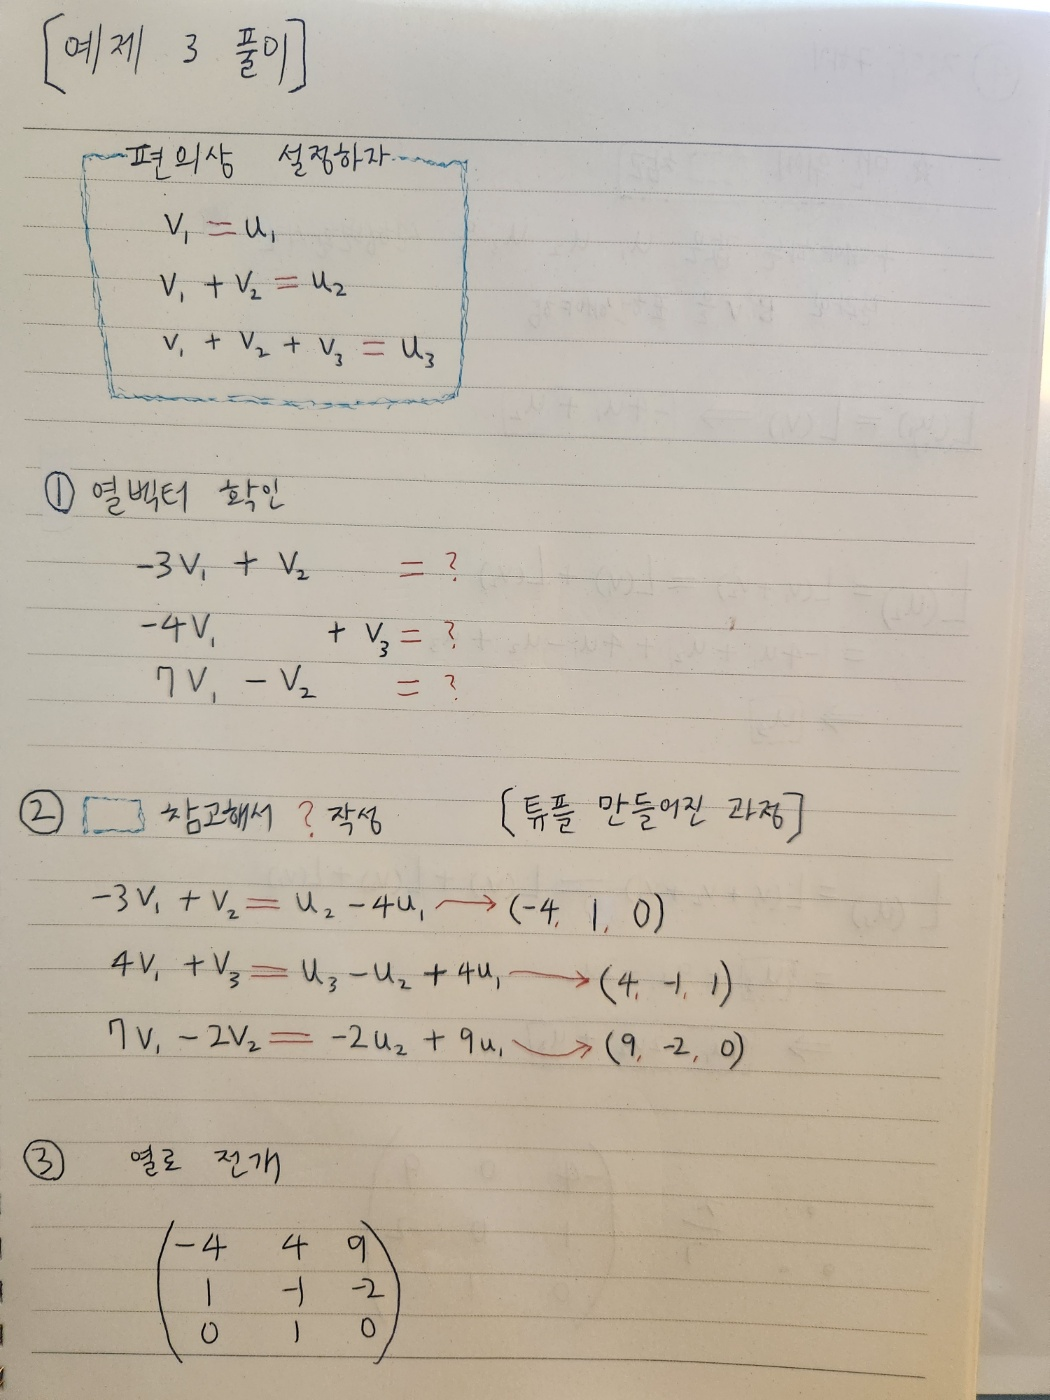 [예제 3 풀이]
편의상 설정하자
V₁ = u₁
V₁ + V₂ = u₂
V₁ + V₂ + V₃ = u₃
① 열벡터 확인
-3V₁ + V₂ = ?
-4V₁ + V₃ = ?
7V₁ - V₂ = ?
② 참고해서 ? 작성 [튜플 만들어진 과정]
-3V₁ + V₂ = u₂ - 4u₁ → (-4, 1, 0)
4V₁ + V₃ = u₃ - u₂ + 4u₁ → (4, -1, 1)
7V₁ - 2V₂ = -2u₂ + 9u₁ → (9, -2, 0)
③ 열로 전개
-4 4 9
1 -1 -2
0 1 0